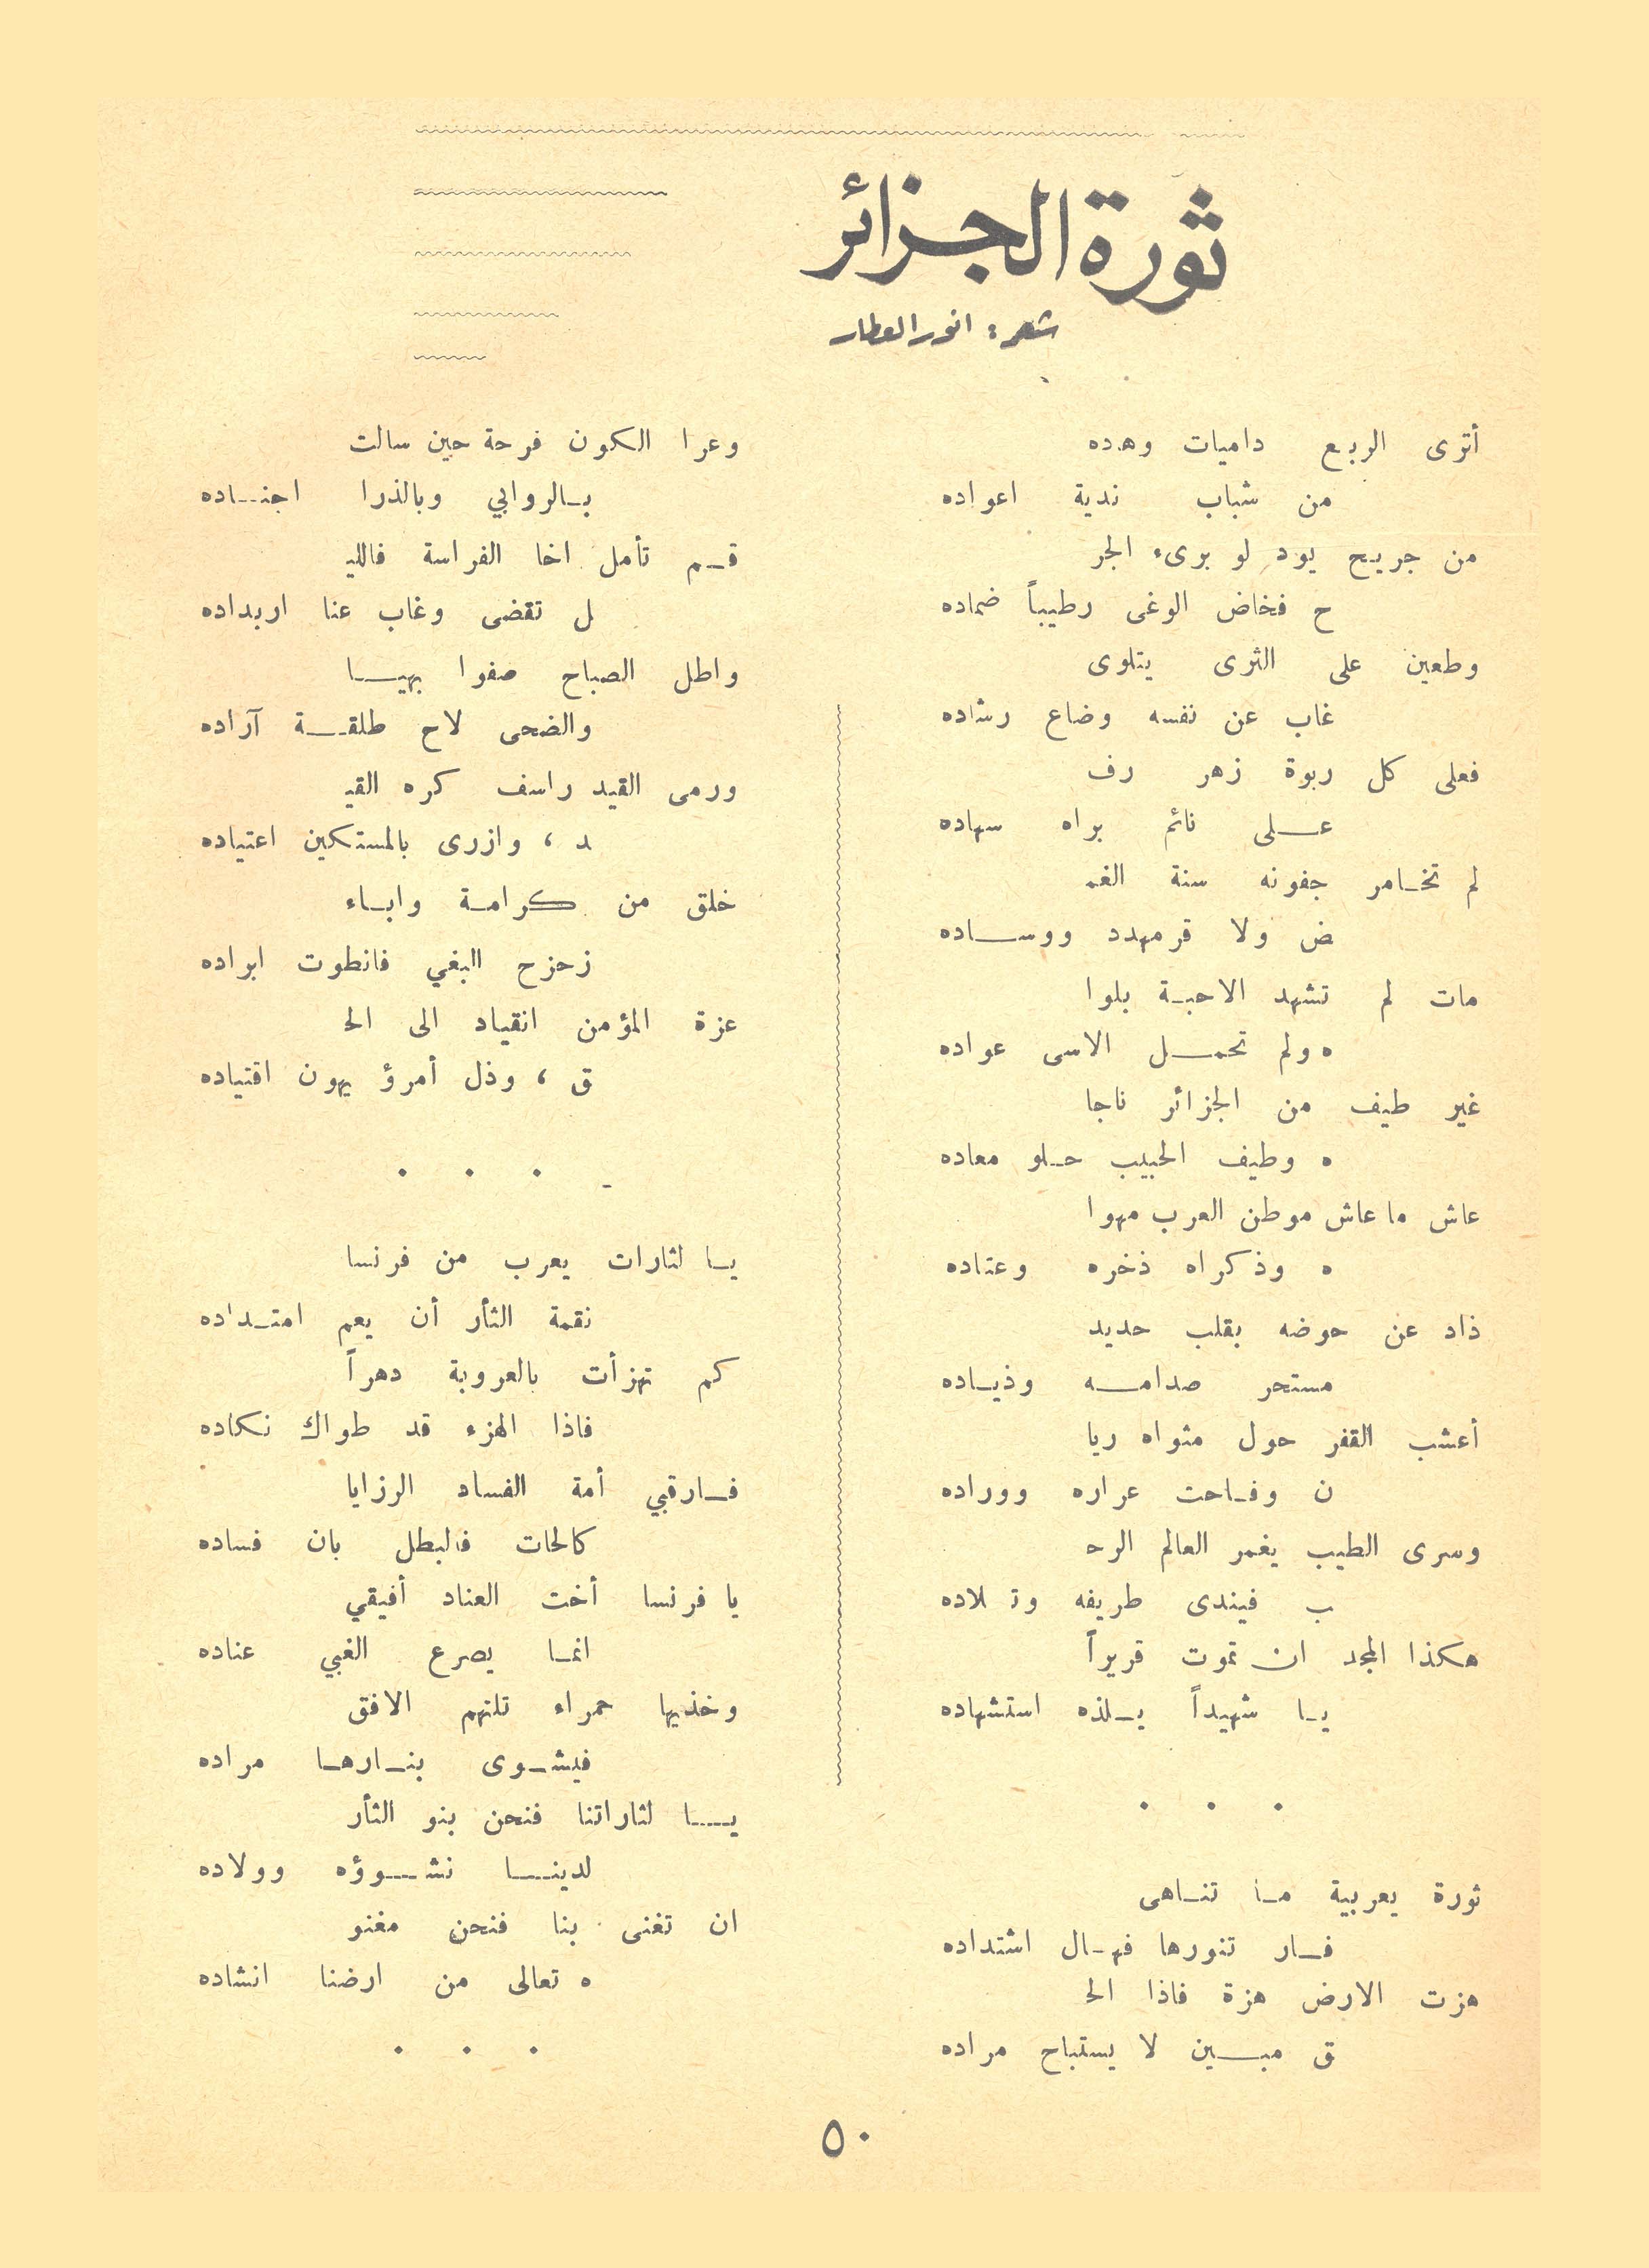 ثورة الجزائر
شعر : انور العطار
أترى الربع داميات وهده
من شباب ندية اعواده
من جريح يود لو برىء الجر
ح فخاض الوغى رطيباً ضماده
وطعين على الثرى يتلوى
غاب عن نفسه وضاع رشاده
فعلى كل ربوة زهر رف
عـلى نائم براه سهاده
لم تخـامر جفونه سنة الغم
ض ولا قر مهدد ووسـاده
مات لم تشهد الاحبـة بلوا
ه ولم تحمـل الاسى عواده
غير طيف من الجزائر ناجا
ه وطيف الحبيب حـلو معاده
عاش ما عاش موطن العرب مهوا
ه وذكراه ذخره وعتاده
ذاد عن حوضه بقلب حديد
مستحر صدامـه وذيـاده
أعشب القفر حول مثواه ريا
ن وفـاحت عراره ووراده
وسرى الطيب يغمر العالم الرح
ب فيندى طريفه وتلاده
هكذا المجد ان تموت قريراً
يـا شهيداً يـلذه استشهاده
. . .
ثورة يعربية مـا تنـاهى
فـار تنورها فهـال اشتداده
هزت الارض هزة فاذا الح
ق مبـين لا يستباح مراده
وعرا الكون فرحة حين سالت
بـالروابي وبالذرا اجنـاده
قـم تأمل اخا الفراسة فاللي
ل تقضى وغاب عنا اربداده
واطل الصباح صفوا بهيـا
والضحى لاح طلقـة آراده
ورمى القيد راسف كره القي
د ، وازرى بالمستكين اعتياده
خلق من كرامـة وابـاء
زحزح البغي فانطوت ابراده
عزة المؤمن انقياد الى الح
ق ، وذل أمرؤ يهون اقتياده
. . .
يـا لثارات يعرب من فرنسا
نقمة الثأر أن يعم امتـداده
كم تهزأت بالعروبة دهراً
فاذا الهزء قد طواك نكاده
فـارقبي أمة الفساد الرزايا
كالحات فالبطل بان فساده
يا فرنسا أخت العناد أفيقي
انمـا يصرع الغبي عناده
وخذيها حمراء تلتهم الافق
فيشـوى بنـارهـا مراده
يـا لثاراتنا فنحن بنو الثأر
لدينـا نشـوؤه وولاده
ان تغنى بنا فنحن مغنو
ه تعالى من ارضنا انشاده
. . .
٥٠